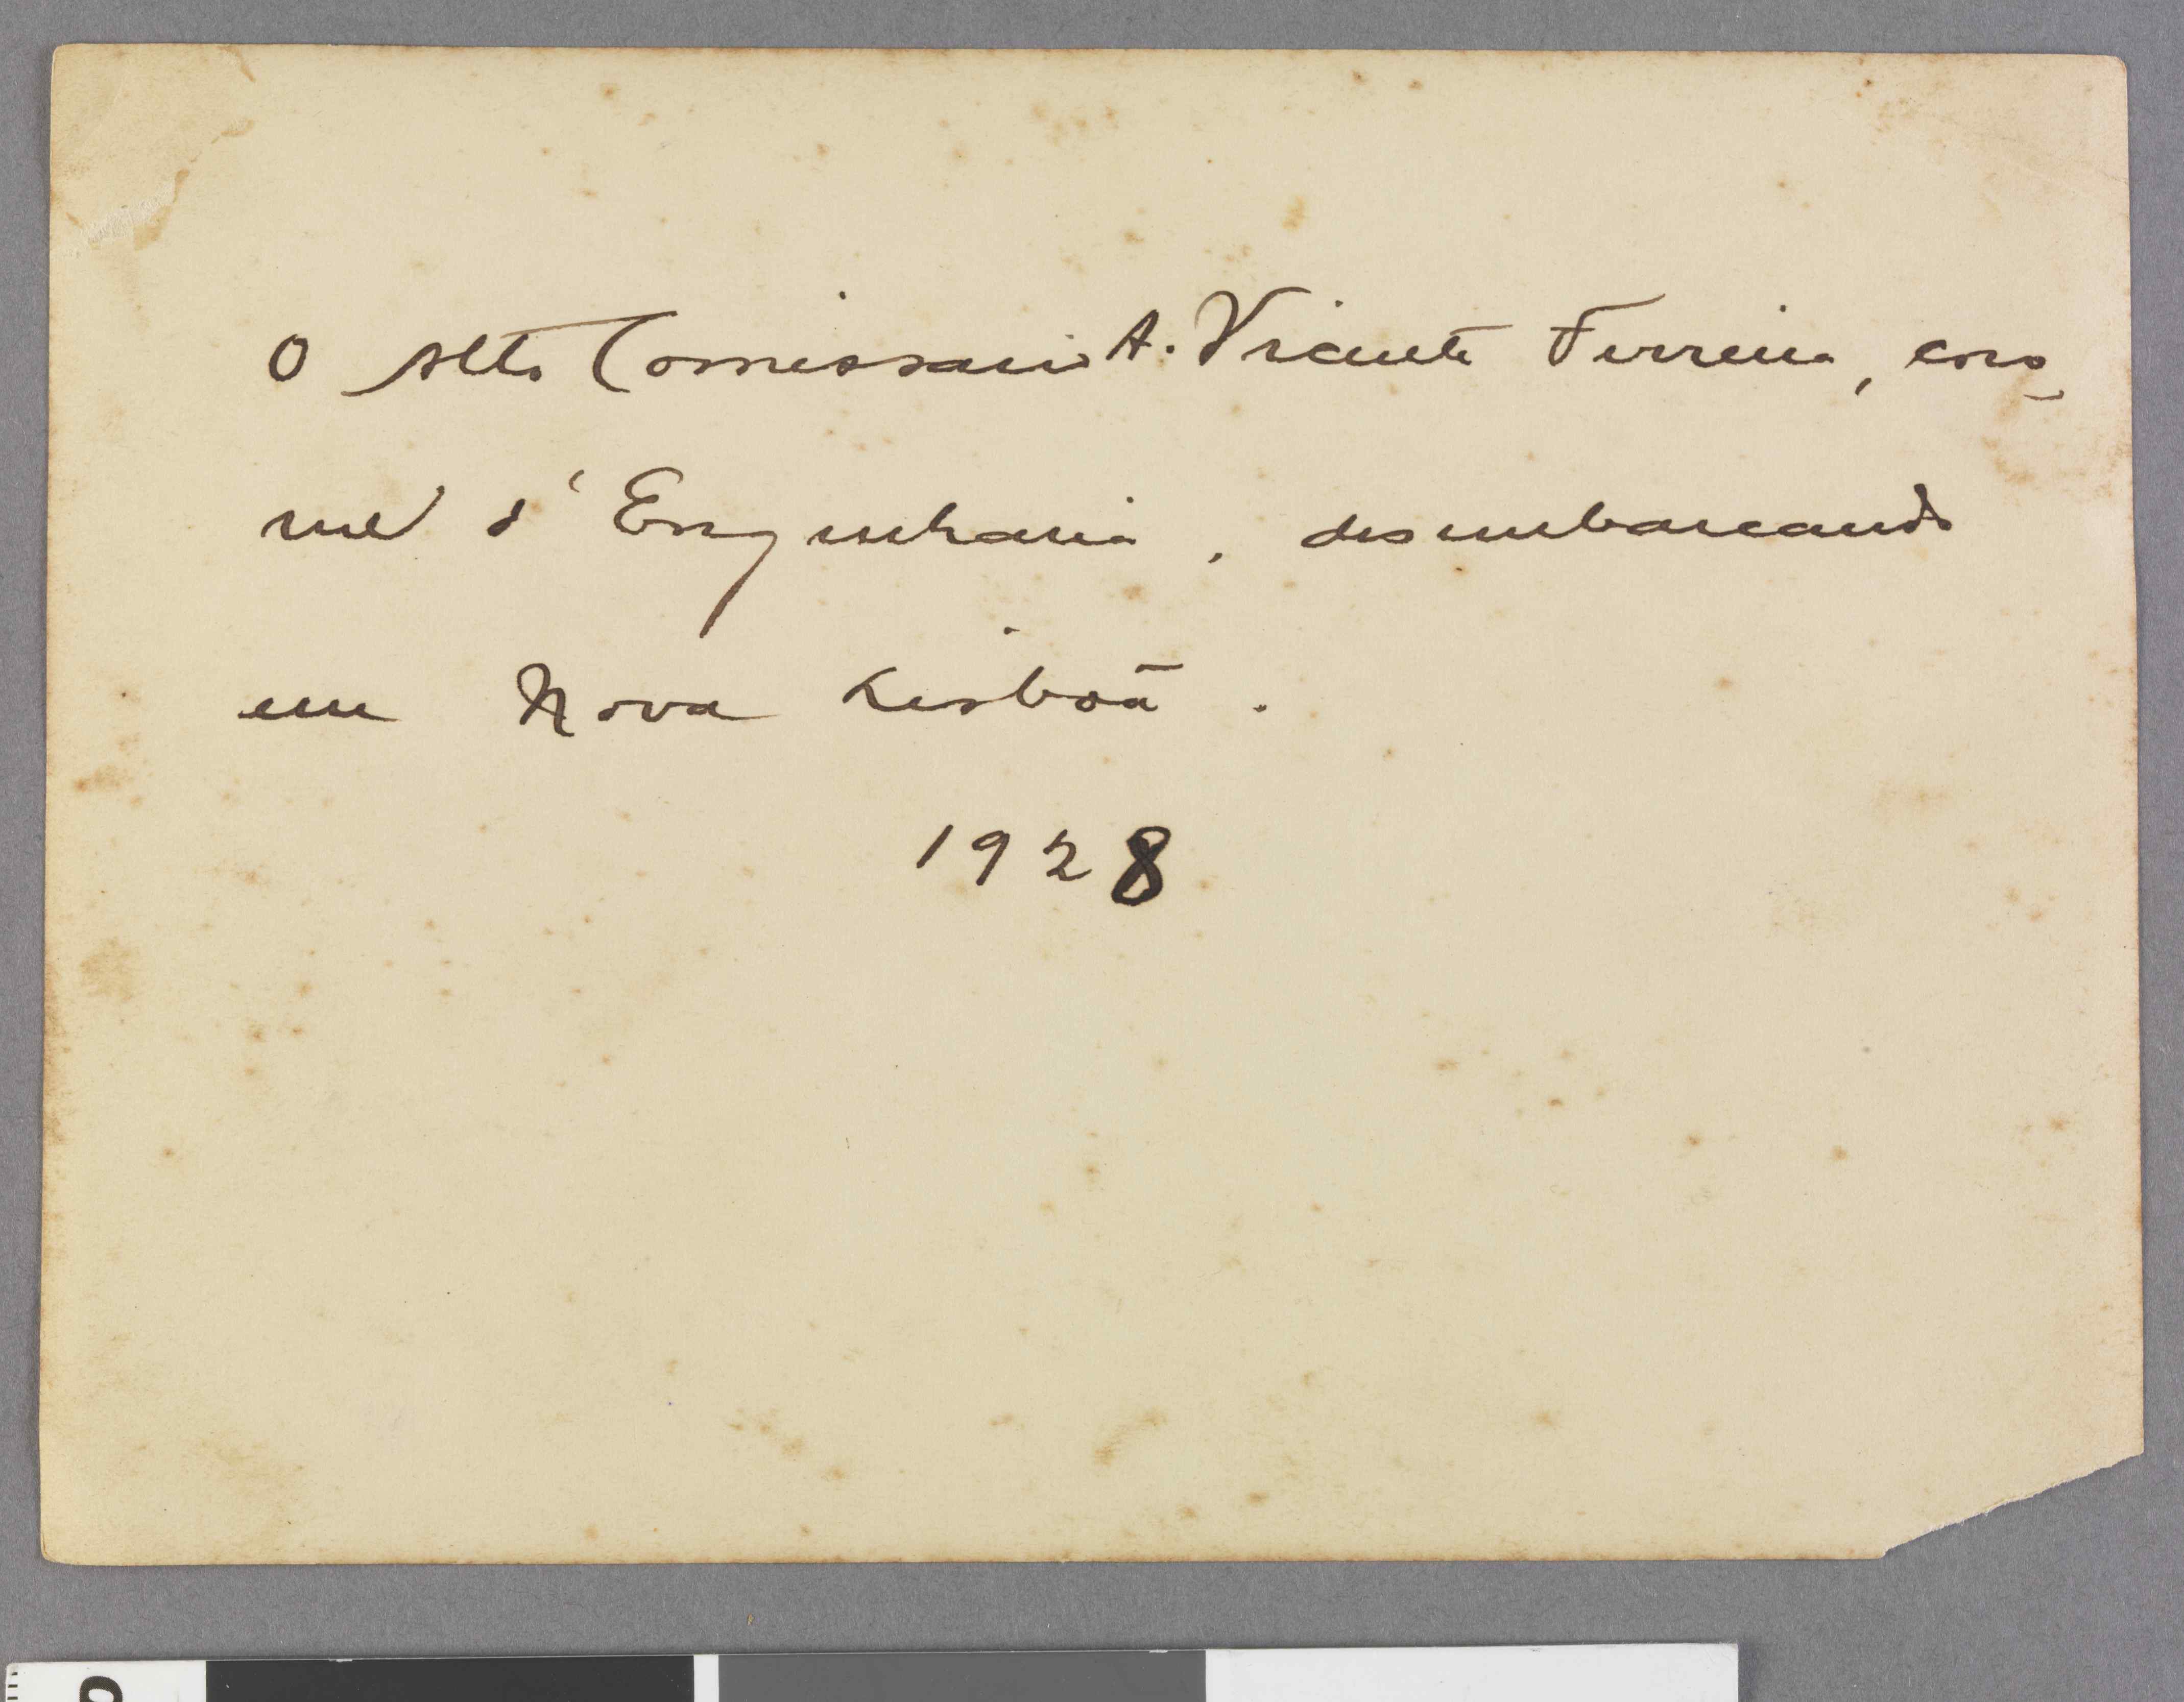 O Alto Comissario A. Vicente Ferreira, coro_
nel d'Engenharia, desembarcando
em Nova Lisboã.
1928